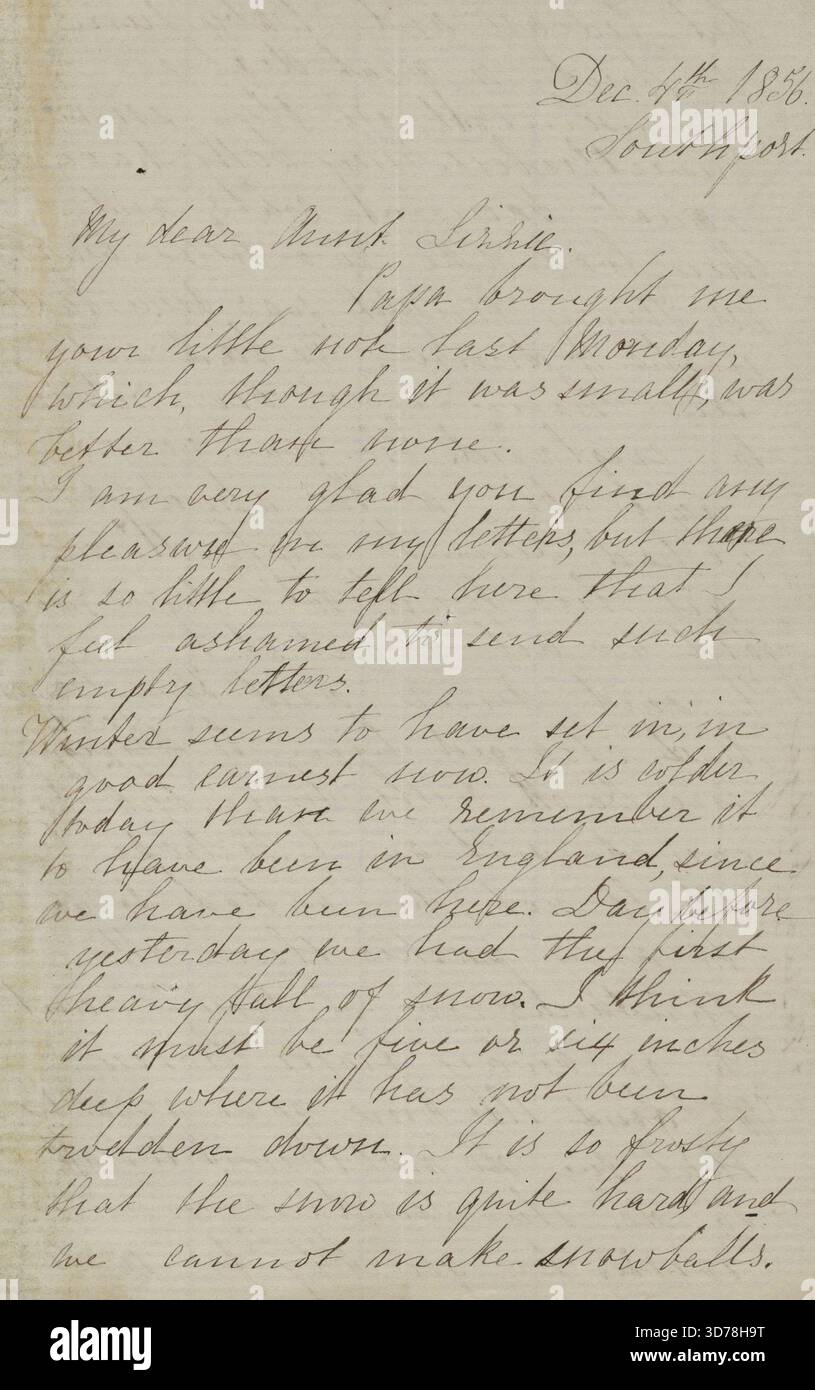 Dec. 4th 1856.
Southport.
My dear Aunt Lizzie.
Papa brought me
your little note last Monday,
which, though it was small, was
better than none.
I am very glad you find any
pleasure in my letters, but there
is so little to tell here that I
feel ashamed to send such
empty letters.
Winter seems to have set in, in
good earnest now. It is colder
today than we remember it
to have been in England, since
we have been here. Day before
yesterday we had the first
heavy fall of snow. I think
it must be five or six inches
deep where it has not been
trodden down. It is so frosty
that the snow is quite hard and
we cannot make snowballs.
alamy
Image ID: 3D78H9T
www.alamy.com